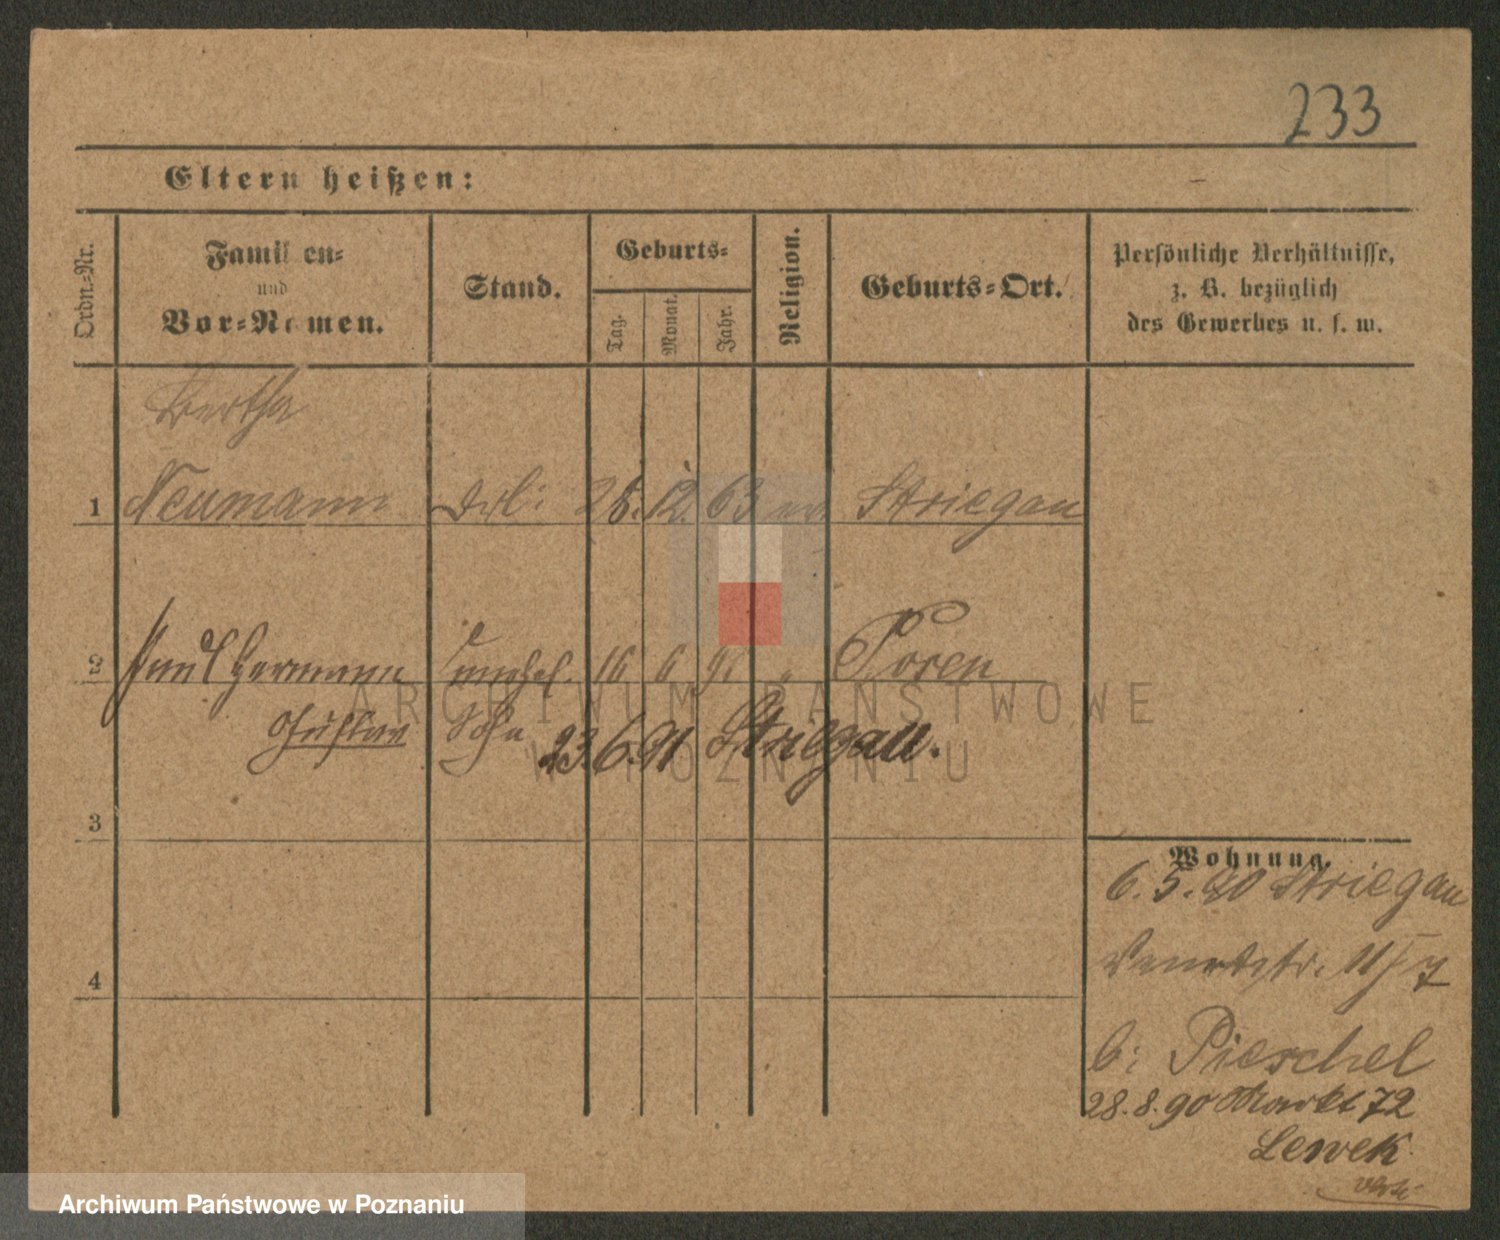 233
Eltern heißen:
Ordn.-Nr.
Familien-
und
Vor-Namen.
Stand.
Geburts-
Tag.
Monat.
Jahr.
Religion.
Geburts-Ort.
Persönliche Verhältnisse,
z. B. bezüglich
des Gewerbes u. s. w.
Bertha
1 Neumann 25. 12. 63 ev Striegau
2 Paul Hermann unehel. 16 6 91 " Posen
Gustav Sohn 23.6.91 Striegau.
3
4
Wohnung.
6. 5. 90 Striegau
b: Pieschel
28. 8. 90 Markt 72
Lewek
ARCHIWUM PAŃSTWOWE
W POZNANIU
Archiwum Państwowe w Poznaniu